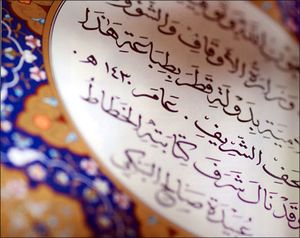 وزارة الأوقاف والشؤو
مية بدولة قطر بطباعة هذا
حف الشريف . عام ١٤٣٠ هـ .
وقد نال شرف كتابته الخطاط
عبيدة صالح البنكي